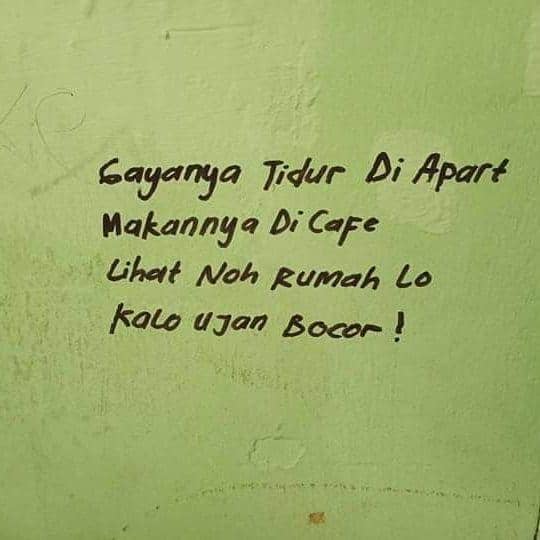 Gayanya Tidur Di Apart
Makannya Di Cafe
Lihat Noh Rumah Lo
Kalo Ujan Bocor!